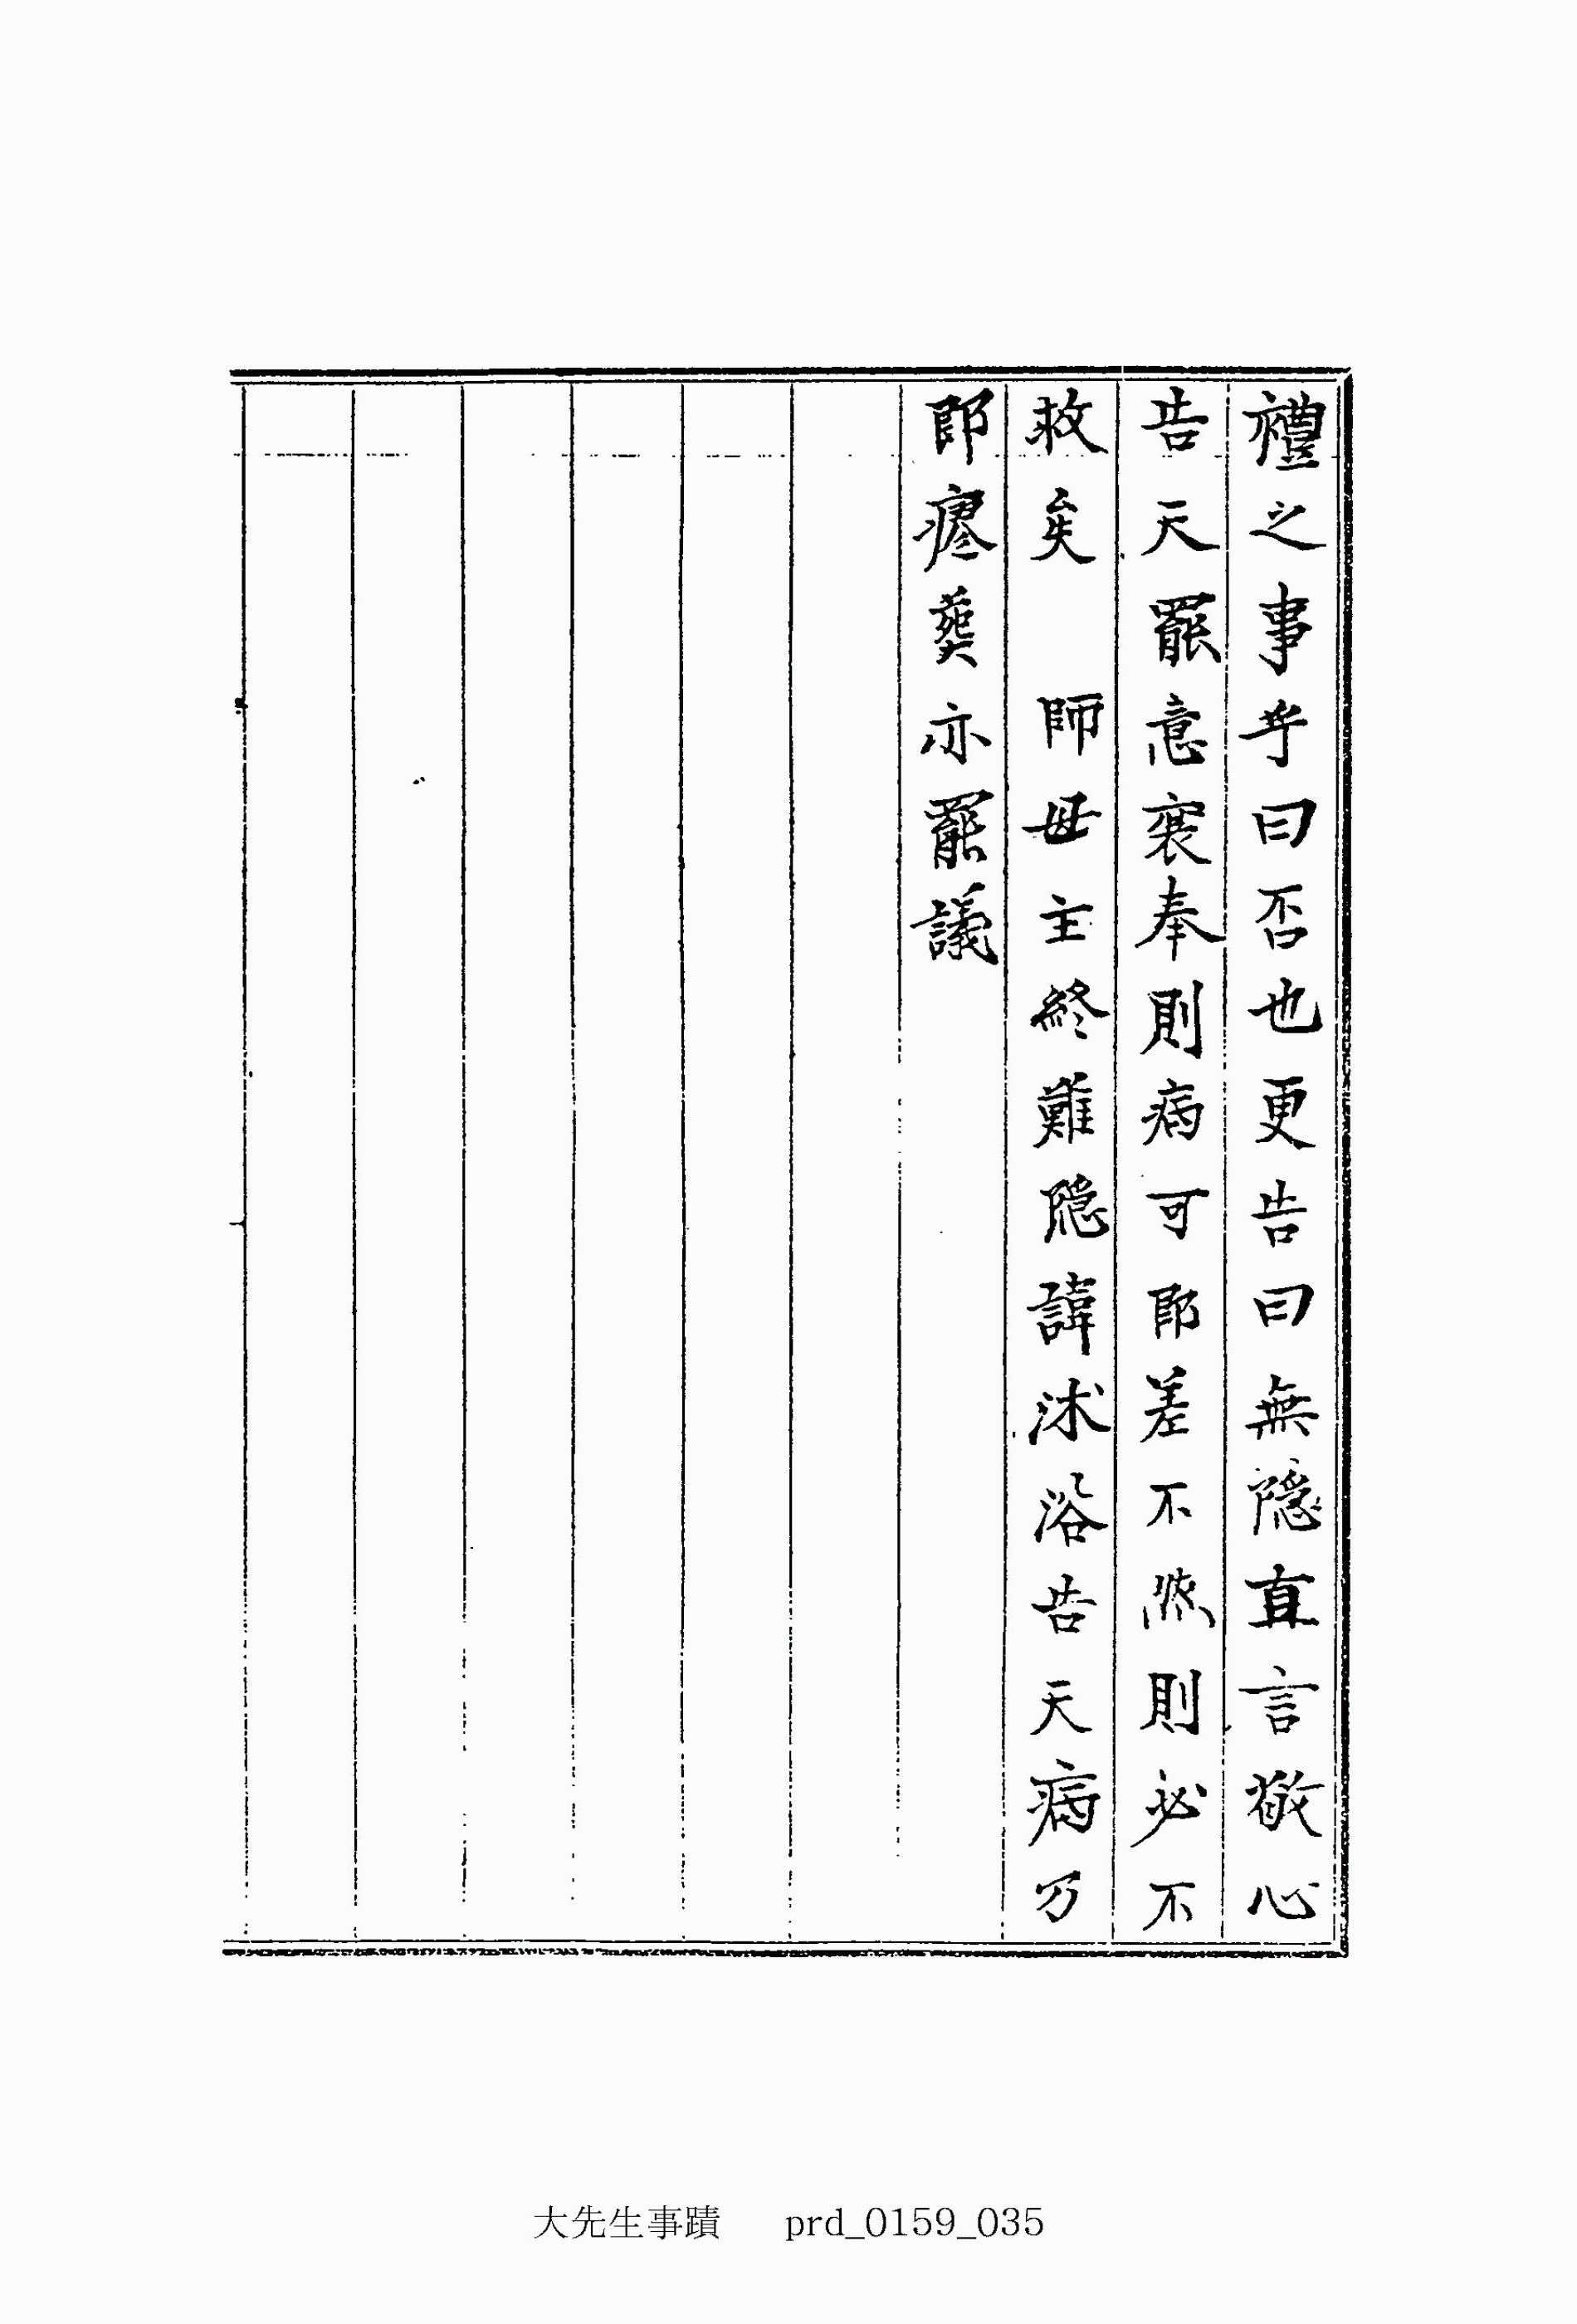 禮之事乎曰否也更告曰無隱直言敬心
告天罷意褱奉則病可卽差不然則必不
救矣　師母主終難隱諱沐浴告天病乃
卽瘳葬亦罷議
大先生事蹟 prd_0159_035